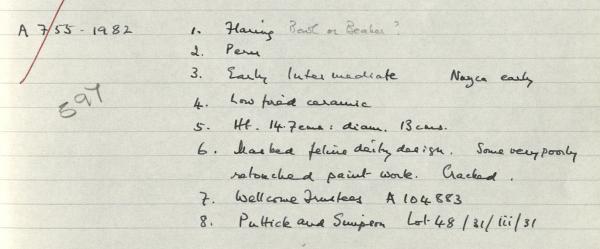 A 755-1982 1. Flaring Bowl or Beaker?
2. Peru
3. Early Intermediate Nazca early
597
4. Low fired ceramic
5. Ht. 14.7cms: diam. 13cms.
6. Masked feline deity design. Some very poorly
retouched paint work. Cracked.
7. Wellcome Trustees A 104883
8. Puttick and Simpson Lot 48/31/iii/31